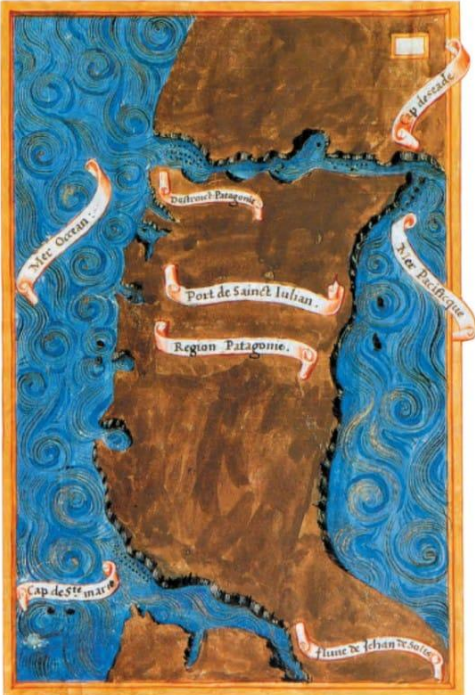 Cap deseade
Destroict Patagonie
Mer Occean.
Mer Pacificque
Port de Sainct Iulian.
Region Patagonie.
Cap de Ste marie
fluve de Jehan de Solis